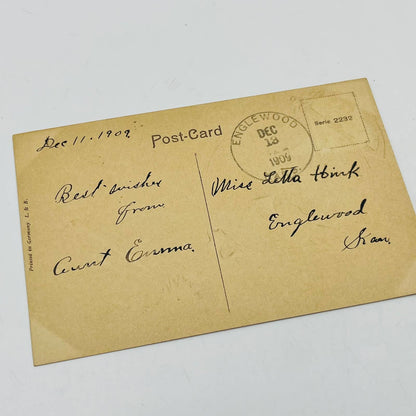 Dec 11. 1909
Post-Card
ENGLEWOOD
DEC
13
1909
Serie 2232
Best wishes
from
Aunt Emma.
Miss Letta Hink
Englewood
Kan.
Printed in Germany L. & B.